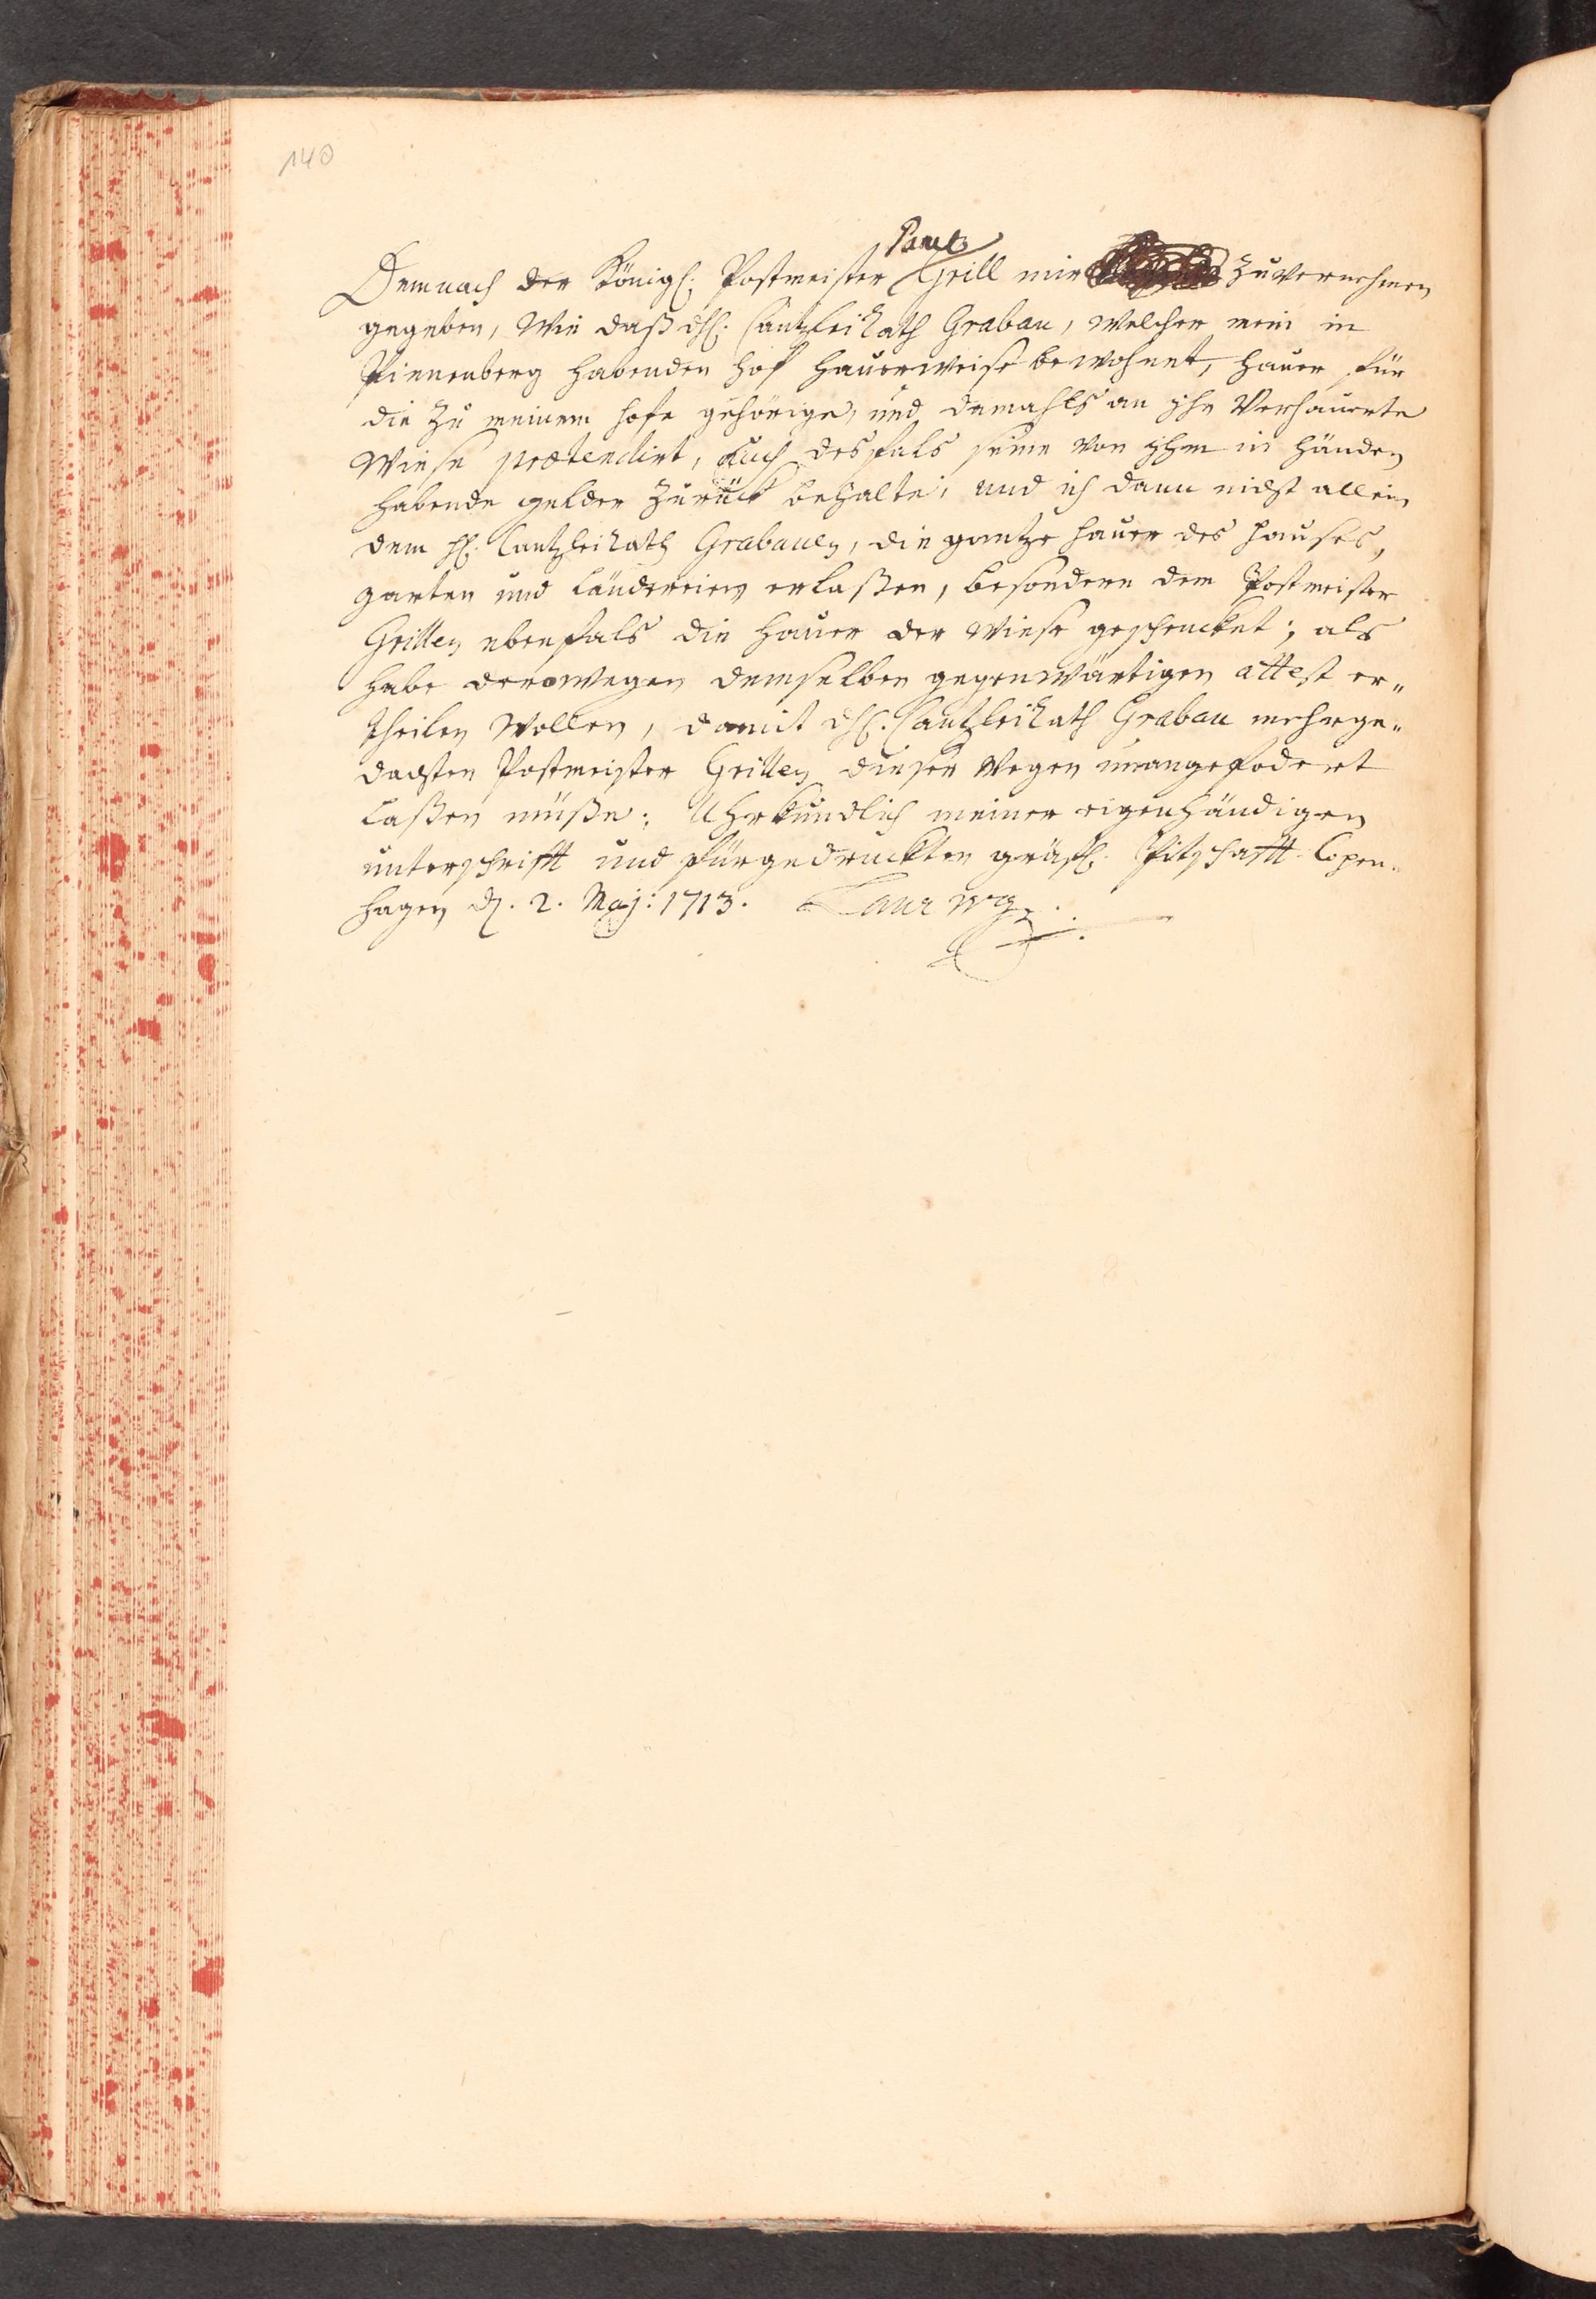 140
Paul
Demnach der Königl. Postmeister Grill mir zuvernehmen
gegeben, Wie daß dH. CantzleiRath Grabau, welcher mein in
Pinnenberg habenden Hof Hauerweise bewohnet, Hauer für
die zu meinem Hofe gehörige, und damahls an ihn Verhauerte
Wiese prætendirt, Auch desfals seine von ihm in Händen
habende gelder zurück behalte, und ich dann nicht allein
dem H. CantzleiRath Grabauen, die gantze Hauer des Hauses,
garten und Ländereien erlaßen, besondern dem Postmeister
Grillen ebenfals die Hauer der Wiese geschencket; als
habe derowegen demselben gegenwärtigen attest er„
theilen Wollen, damit dH. CantzleiRath Grabau mehrge„
dachten Postmeister Grillen dieser Wegen unangefodert
Laßen müße; Uhrkündlich meiner eigenhändigen
unterschrifft und fürgedruckten gräfl. Pitschafft. Copen„
hagen d. 2. Maj: 1713. Laurwg.